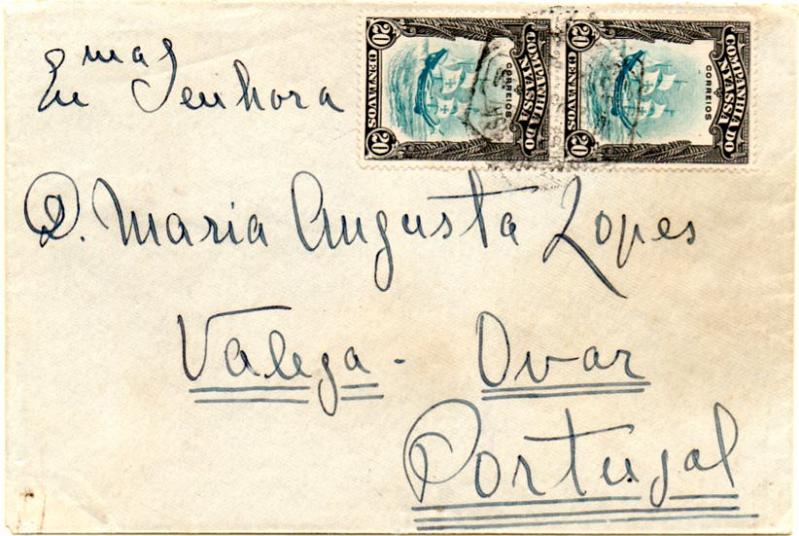 Exmas
Senhora
D. Maria Augusta Lopes
Valega - Ovar
Portugal
COMPANHIA DO NYASSA
CORREIOS
20 CENTAVOS 20
COMPANHIA DO NYASSA
CORREIOS
20 CENTAVOS 20